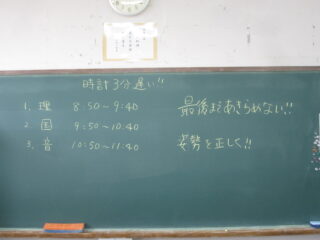 時計3分遅い!!
1. 理 8:50～9:40
2. 国 9:50～10:40
3. 音 10:50～11:40
最後まであきらめない!!
姿勢を正しく!!